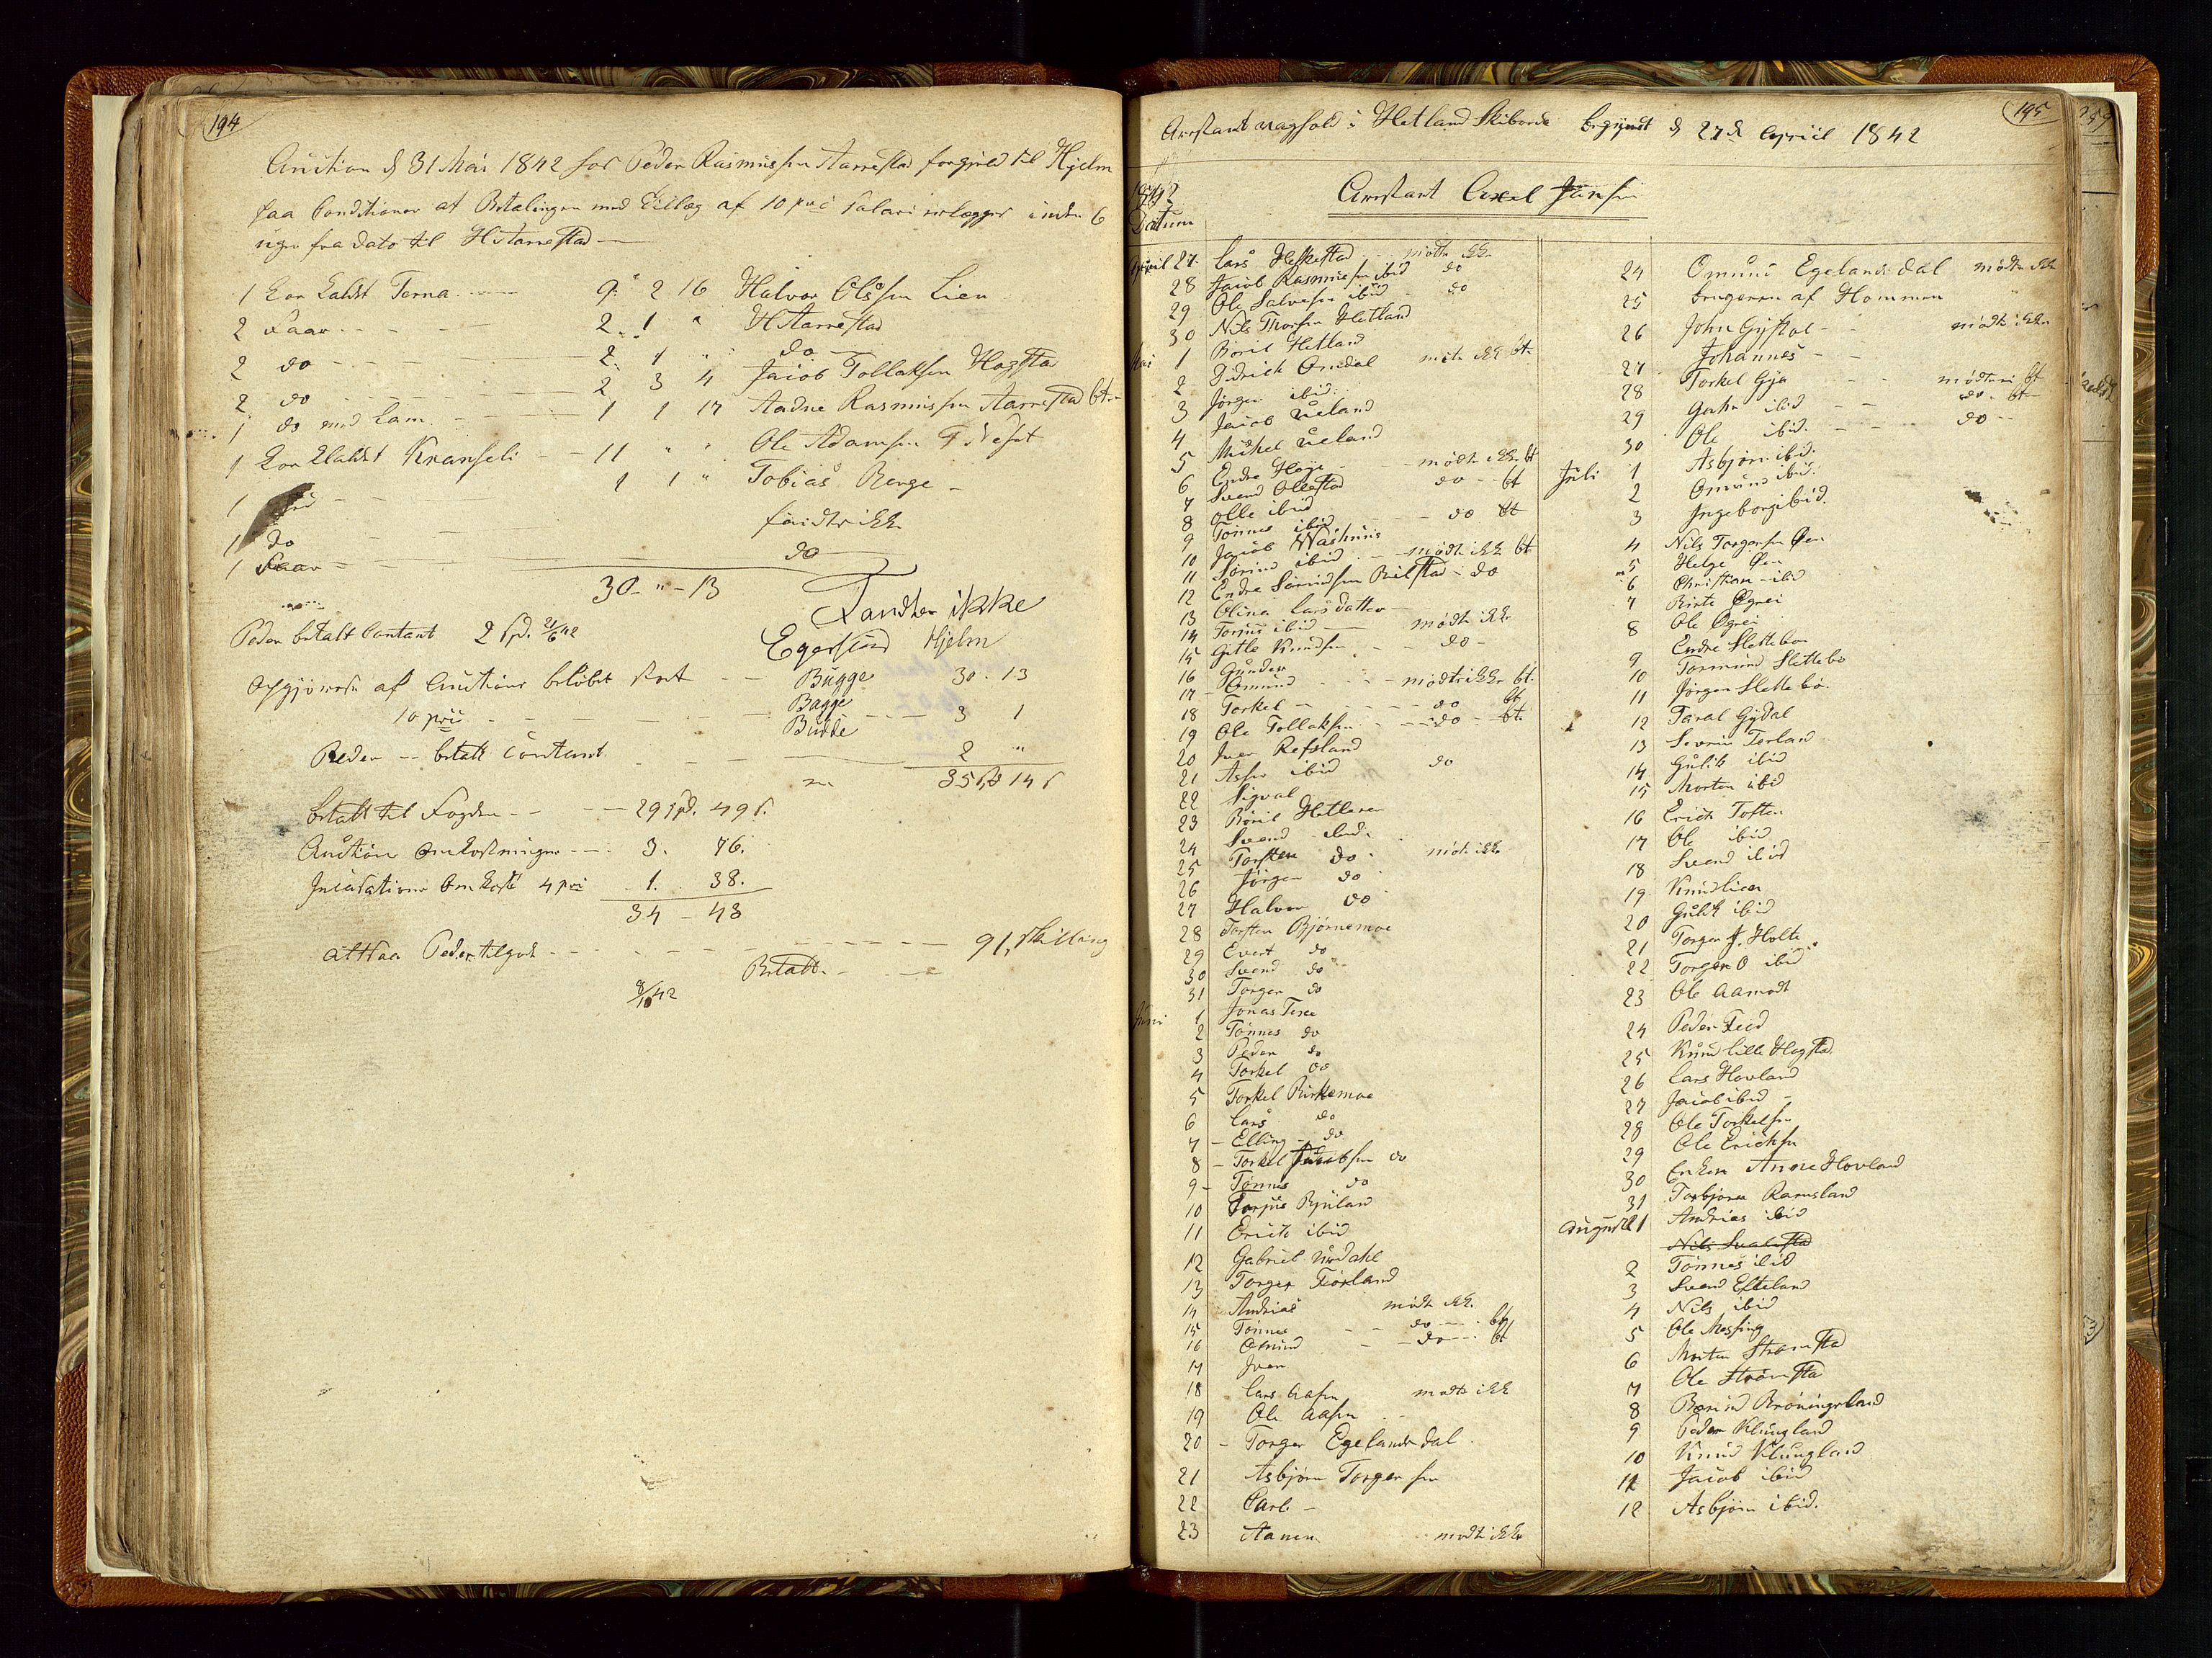 194
Auction d 31 Mai 1842 hos Peder Rasmussen Aarrestad forgjeld til Hjelm
paa Conditioner at Betalingen med Tillæg af 10 pro c Salari erlægges inden 6
uger fra dato til H Aarrestad
1 Koe kaldt Terna 9 " 2 16 Halvor Olsen Lien
2 Faar 2 " 1 " H Aarrestad
2 do 2 " 1 " do
2 do 2 3 4 Jacob Tollaksen Hogstad
1 do med Lam 1 1 17 Aadne Rasmussen Aarrestad bt
1 Koe kaldt Kranseli 11 " " Ole Adamsen
1 1 1 " Tobias Berge
1 do fandtes ikke
1 Faar do
30 " 13 Fandtes ikke
Peder betalt Contant 2 spd. 21/6 42
Egersund Hjelm
Opgjørelse af Auctions beløbet stort Bugge 30 . 13
Bagge
10 pro c Budde 3 1
Peder betalt Contant 2 "
35 spd 14 s
betalt til Fogden 29 spd. 49 s.
Auctions Omkostninger 3. 76.
Incasations Omkost 4 pro c 1. 38.
34 - 43
altsaa Peder tilgode 91 skilling
Betalt
8/10 42
195
Arrestant vagthold i Hetland Skibrede begyndt d 27de April 1842
1842
Datum
Arrestant Axel Jensen
April 27 Lars Heskestad mødte ikke
28 Jacob Rasmussen ibid do
29 Ole Salvesen ibid do
30 Nils Thorsen Hetland
Mai 1 Boril Hetland
2 Didrich Omdal mødte ikke bt.
3 Jørgen ibid
4 Jacob Ueland
5 Michel Ueland
6 Endre Høge mødte ikke bt
7 Svend Ollestad do bt
8 Olle ibid
9 Tønnes ibid do bt
10 Jacob
11 Sørine ibid mødte ikke bt
12 Endre Sørindsen Bilstad do
13 Olina Larsdatter
14 Tonnes ibid mødte ikke
15 Gitle Knudsen do
16 Gunder
17 Omund mødte ikke bt.
18 Torkel do bt
19 Ole Tollaksen do bt.
20 Iver Refsland
21 Asser ibid do
22 Sigval
23 Boril Hetleren
24 Svend ibid
25 Torsten do mødte ikke
26 Jørgen do
27 Halvor do
28 Torsten Bjørnemoe
29 Evert do
30 Svend do
31 Torger do
Juni 1 Jonas
2 Tønnes do
3 Peder do
4 Torkel do
5 Torkel Birkemoe
6 Lars do
7 Elling do
8 Torkel Jacobsen do
9 Tønnes do
10 Torjus Bjuland
11 Erich ibid
12 Gabriel Urdahl
13 Torger Fiorland
14 Andreas mødte ikke
15 Tønnes do bt
16 Omund do bt
17 Iver
18 Lars Aasen mødte ikke
19 Ole Aasen
20 Torger Egelandsdal
21 Asbjørn Torgersen
22 Carl
23 Aanen mødte ikke
24 Omund Egelandsdal mødte ikke
25 brugeren af Hommen "
26 John Gystøl mødte ikke
27 Johannes
28 Torkel Gya mødte ei bt
29 ibid do bt
30 Ole ibid. do
Juli 1 Asbjørn ibid.
2 Omund ibid.
3 Ingeborg ibid.
4 Nils Torgersen Øen
5 Helge Øen
6 Christian ibid
7 Birte Øgrei
8 Ole Øgrei
9 Endre Slettebø
10 Tormund Slettebø
11 Jørgen Slettebø.
12 Taral Gydal
13 Severin Terland
14 Gulik ibid
15 Morten ibid
16 Erich Toften
17 Ole ibid
18 Svend ibid
19 Knud Lien
20 ibid
21 Torger J. Holte
22 Torger O ibid
23 Ole Aamodt
24 Peder Feed
25 Knud lille Hogstad
26 Lars Hovland
27 Jacob ibid
28 Ole Torkelsen
29 Ole Erichsen
30 Enken Anne Hovland
31 Torbjøren Ramsland
August 1 Andreas ibid
Nils Svalestad
2 Tønnes ibid
3 Svend Efteland
4 Nils ibid
5 Ole Messing
6 Morten Strømstad
7 Ole Strømstad
8 Berent Brøningeland
9 Peder Klungland
10 Knud Klungland
11 Jacob ibid
12 Asbjørn ibid.